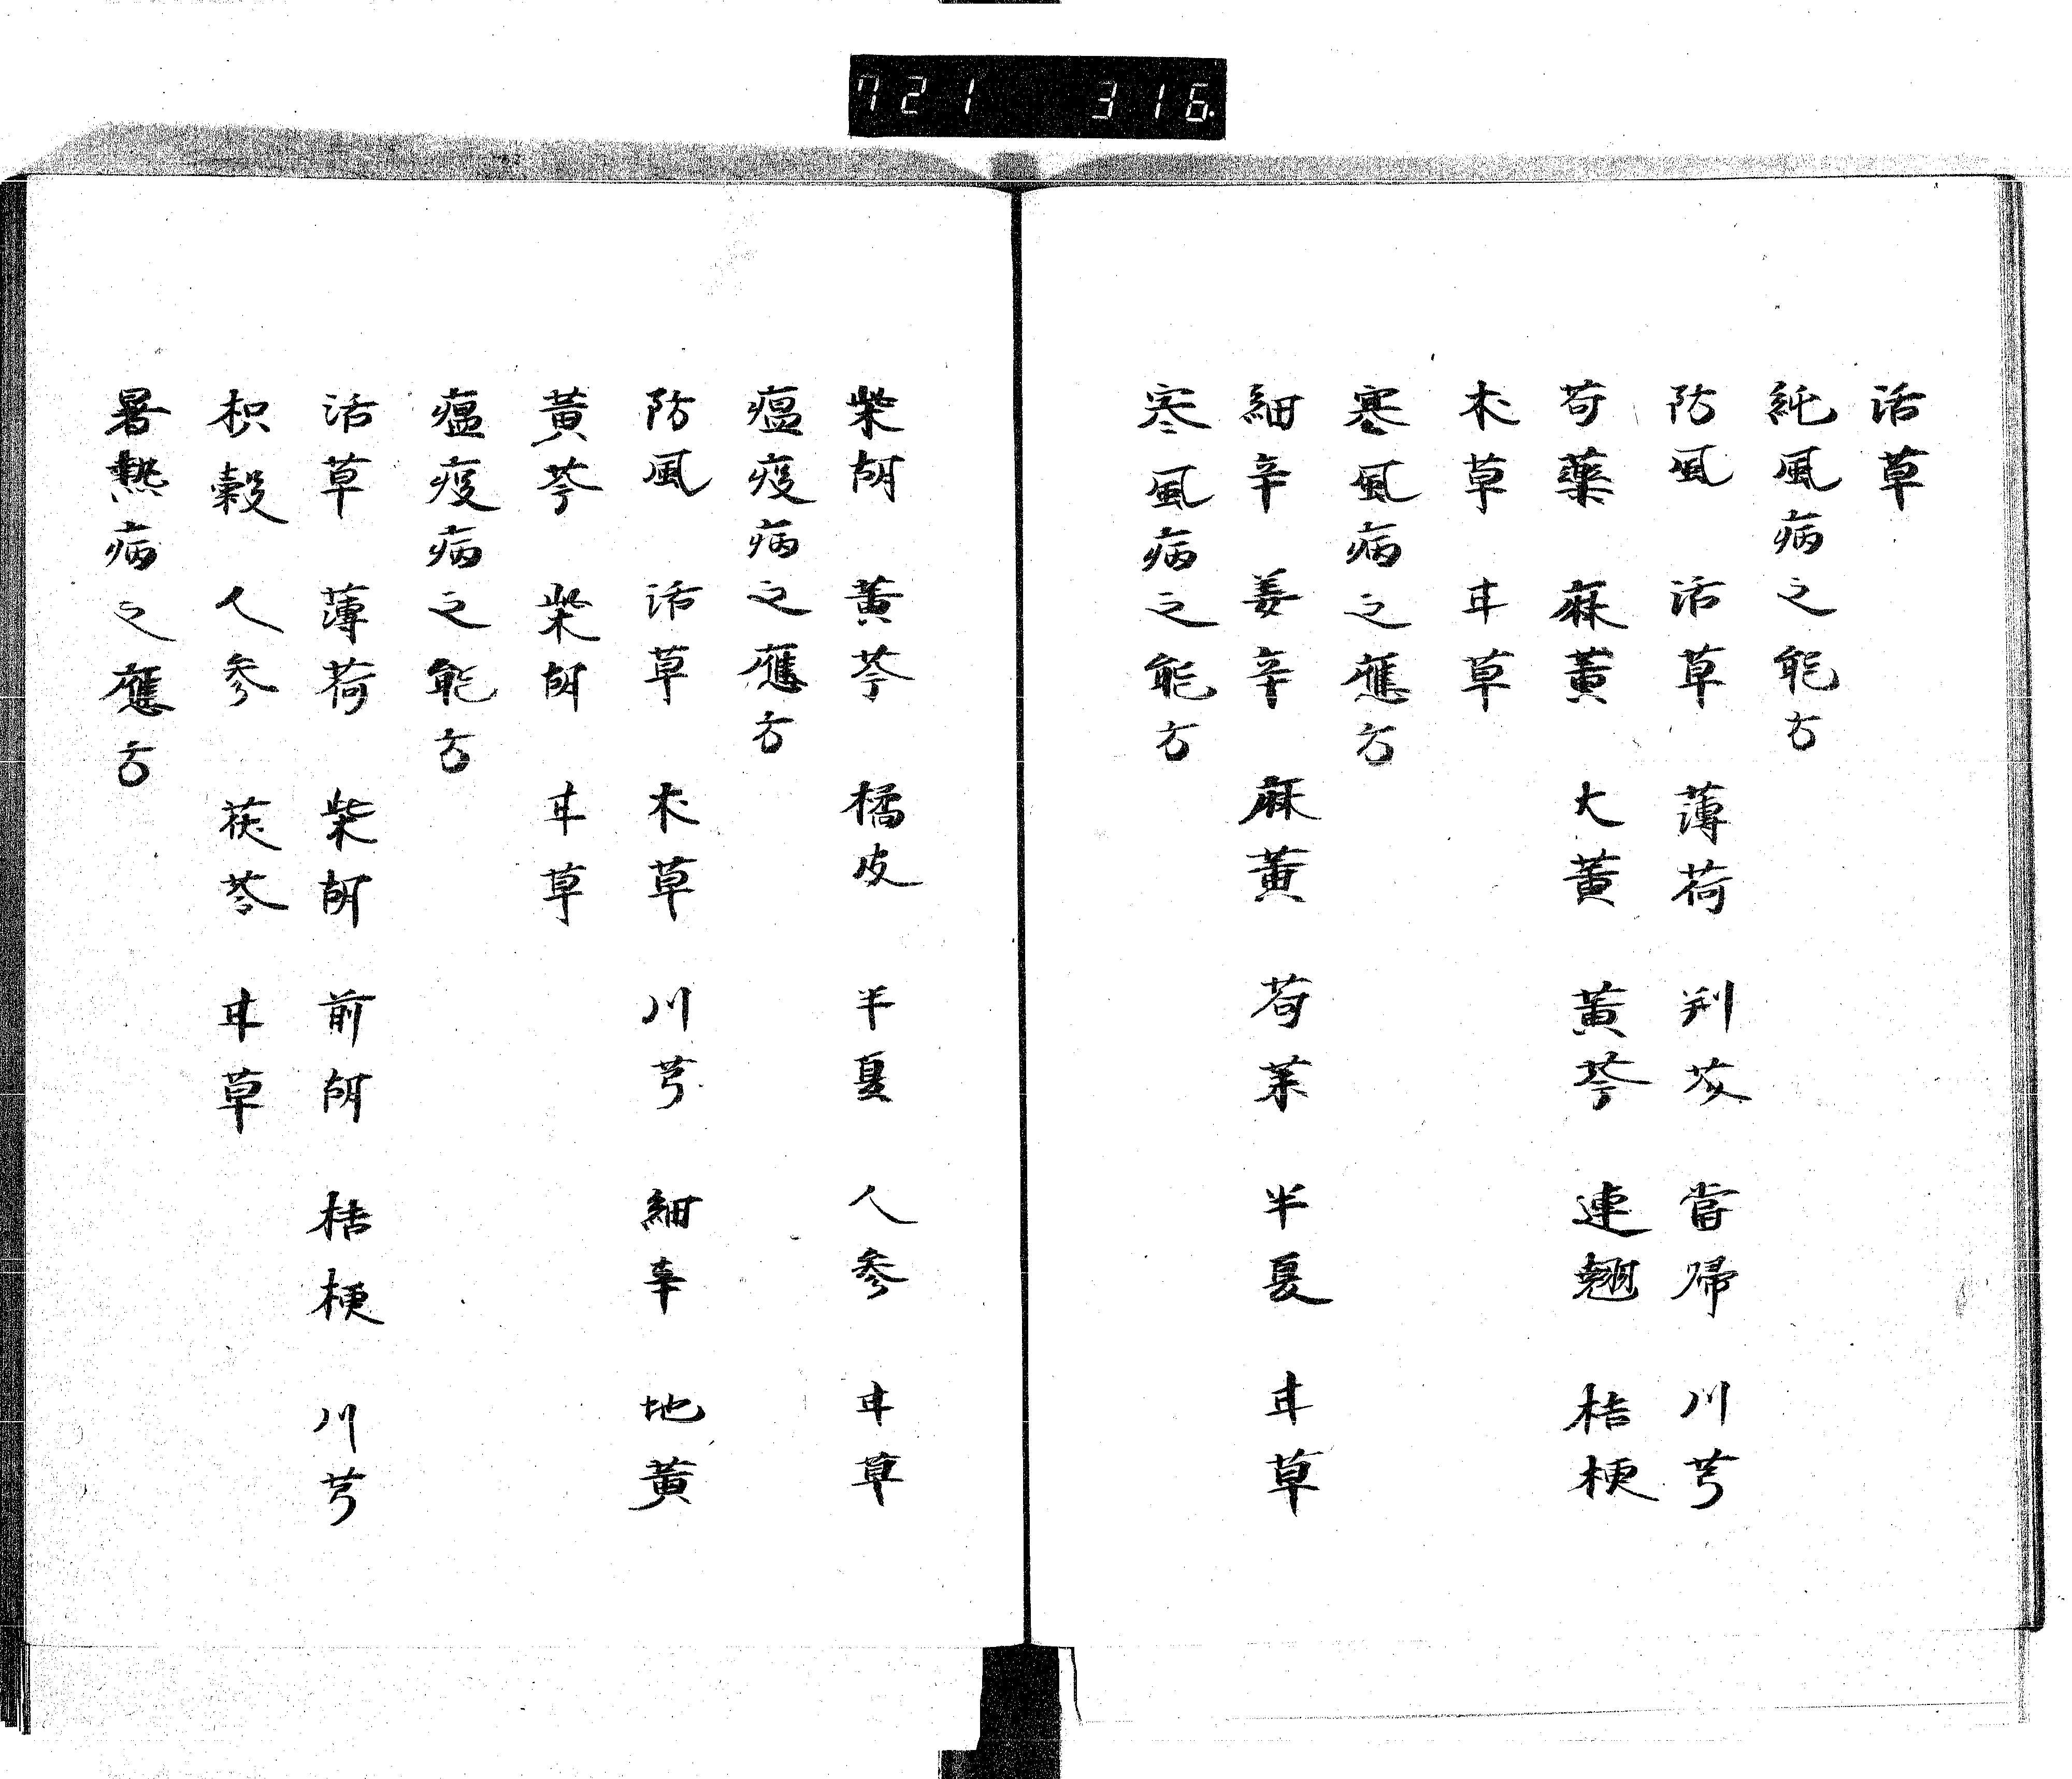 721 316.
活草
純風病之能方
防風 活草 薄荷 荆芥 當帰 川芎
芍藥 麻黄 大黄 黄芩 連翹 桔梗
朮草 甘草
寒風病之應方
細辛 姜辛 麻黄 芍薬 半夏 甘草
寒風病之能方
柴胡 黄芩 橘皮 半夏 人参 甘草
瘟疫病之應方
防風 活草 朮草 川芎 細辛 地黄
黄芩 柴胡 甘草
瘟疫病之能方
活草 薄荷 柴胡 前胡 桔梗 川芎
枳穀 人参 茯苓 甘草
暑熱病之應方